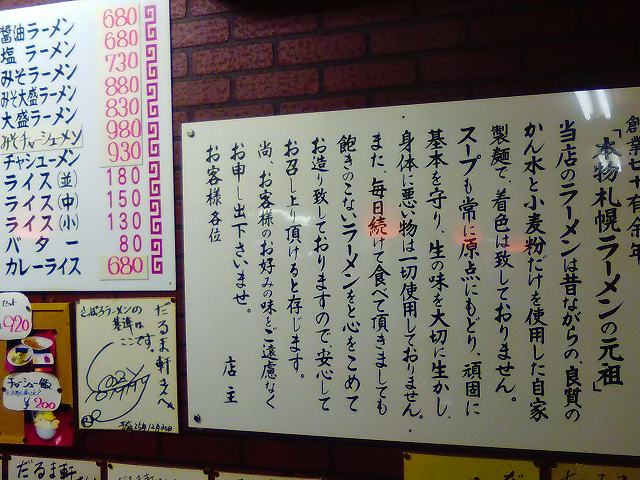 醤油ラーメン 680
塩ラーメン 680
みそラーメン 730
みそ大盛ラーメン 880
大盛ラーメン 830
みそチャーシューメン 980
チャシューメン 930
ライス(並) 180
ライス(中) 150
ライス(小) 130
バター 80
カレーライス 680
「本物札幌ラーメンの元祖」
当店のラーメンは昔ながらの、良質の
かん水と小麦粉だけを使用した自家
製麺で、着色は致しておりません。
スープも常に原点にもどり、頑固に
基本を守り、生の味を大切に生かし
身体に悪い物は一切使用しておりません。
また、毎日続けて食べて頂きましても
飽きのこないラーメンをと心をこめて
お造り致しておりますので、安心して
お召し上り頂けると存じます。
尚、お客様のお好みの味をご遠慮なく
お申し出下さいませ。
店主
お客様各位
セット
¥920
チャーシュー飯
¥200
だるま軒さんへ
さっぽろラーメンの
基準は
ここです。
平成25年12月30日
だるま軒